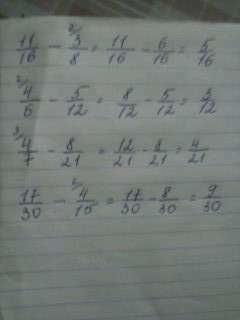 11/16 - ²⁄3/8 = 11/16 - 6/16 = 5/16
²⁄4/6 - 5/12 = 8/12 - 5/12 = 3/12
³⁄4/7 - 8/21 = 12/21 - 8/21 = 4/21
17/30 - ²⁄4/15 = 17/30 - 8/30 = 9/30